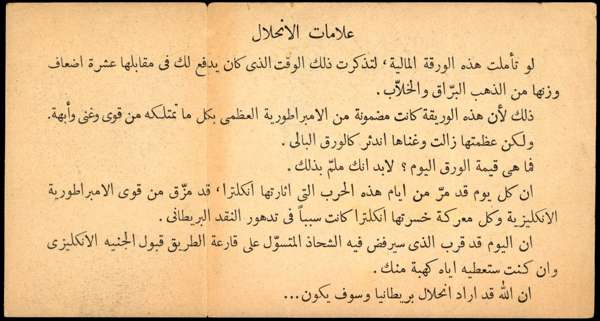 علامات الانحلال
لو تأملت هذه الورقة المالية، لتذكرت ذلك الوقت الذى كان يدفع لك فى مقابلها عشرة اضعاف
وزنها من الذهب البرّاق والخلّاب.
ذلك لأن هذه الوريقة كانت مضمونة من الامبراطورية العظمى بكل ما تمتلكه من قوى وغنى وأبهة.
ولكن عظمتها زالت وغناها اندثر كالورق البالى.
فما هى قيمة الورق اليوم؟ لابد انك ملمّ بذلك.
ان كل يوم قد مرّ من ايام هذه الحرب التى اثارتها أنكلترا، قد مزّق من قوى الامبراطورية
الانكليزية وكل معركة خسرتها أنكلترا كانت سبباً فى تدهور النقد البريطانى.
ان اليوم قد قرب الذى سيرفض فيه الشحاذ المتسوّل على قارعة الطريق قبول الجنيه الانكليزى
وان كنت ستعطيه اياه كهبة منك.
ان الله قد اراد انحلال بريطانيا وسوف يكون...